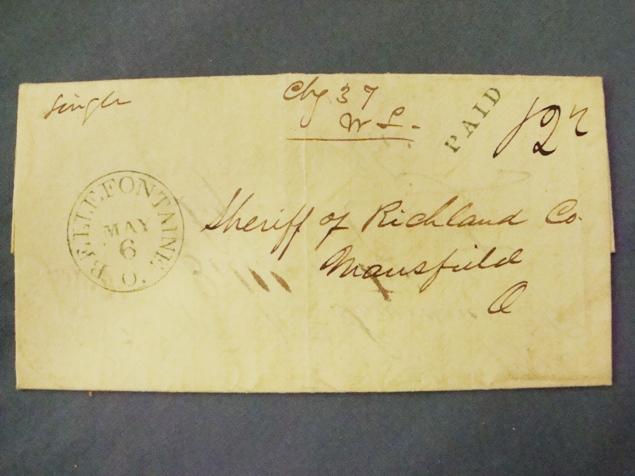 Single
Chg 37
W L.
PAID
12½
BELLEFONTAINE O.
MAY
6
Sheriff of Richland Co
Mansfield
O